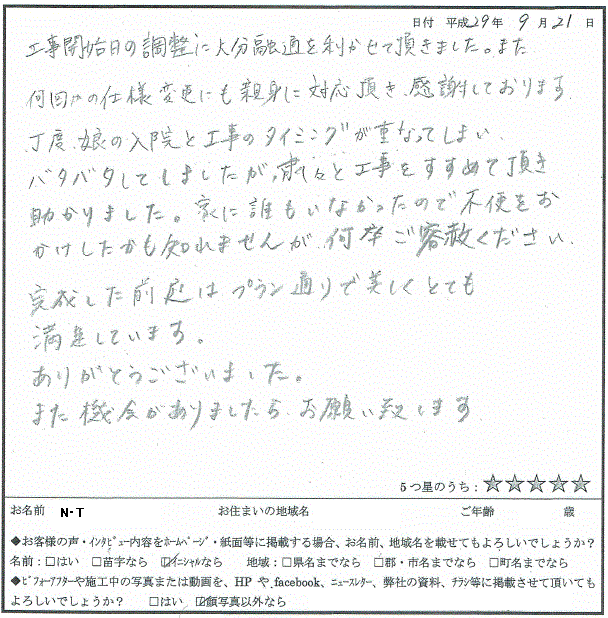 日付 平成29年 9月21日
工事開始日の調整に大分融通を利かせて頂きました。また
何回かの仕様変更にも親身に対応頂き、感謝しております。
丁度、娘の入院と工事のタイミングが重なってしまい、
バタバタしてしましたが、粛々と工事をすすめて頂き
助かりました。家に誰もいなかったので不便をお
かけしたかも知れませんが、何卒ご容赦ください。
完成した前庭は、プラン通りで美しくとても
満足しています。
ありがとうございました。
また機会がありましたら、お願い致します。
5つ星のうち:☆☆☆☆☆
お名前 N-T お住まいの地域名 ご年齢 歳
◆お客様の声・インタビュー内容をホームページ・紙面等に掲載する場合、お名前、地域名を載せてもよろしいでしょうか?
名前:□はい □苗字なら ☑イニシャルなら 地域:□県名までなら □郡・市名までなら □町名までなら
◆ビフォーアフターや施工中の写真または動画を、HP や facebook、ニュースレター、弊社の資料、チラシ等に掲載させて頂いても
よろしいでしょうか? □はい ☑顔写真以外なら